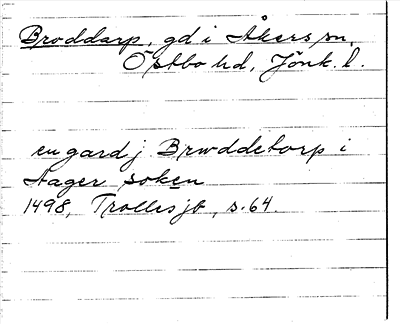 Broddarp, gd i Åkers sn,
Östbo hd, Jönk. l.
en gard j Brwddetorp i
Aager soken
1498, Trollesjb, s. 64.